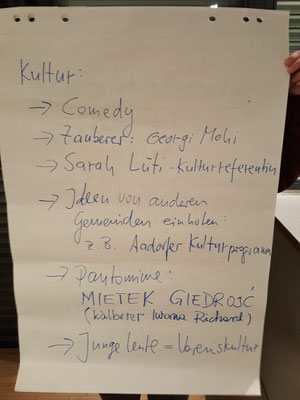 Kultur:
→ Comedy
→ Zauberer: Georgi Mohi
→ Sarah Lüti - Kulturreferentin
→ Ideen von anderen
Gemeinden einholen:
z.B. Aadorfer Kulturprogramm
→ Pantomime:
MIETEK GIEDROJĆ
(Kälberer Iwona Richard)
→ Junge Leute = Vereinskultur